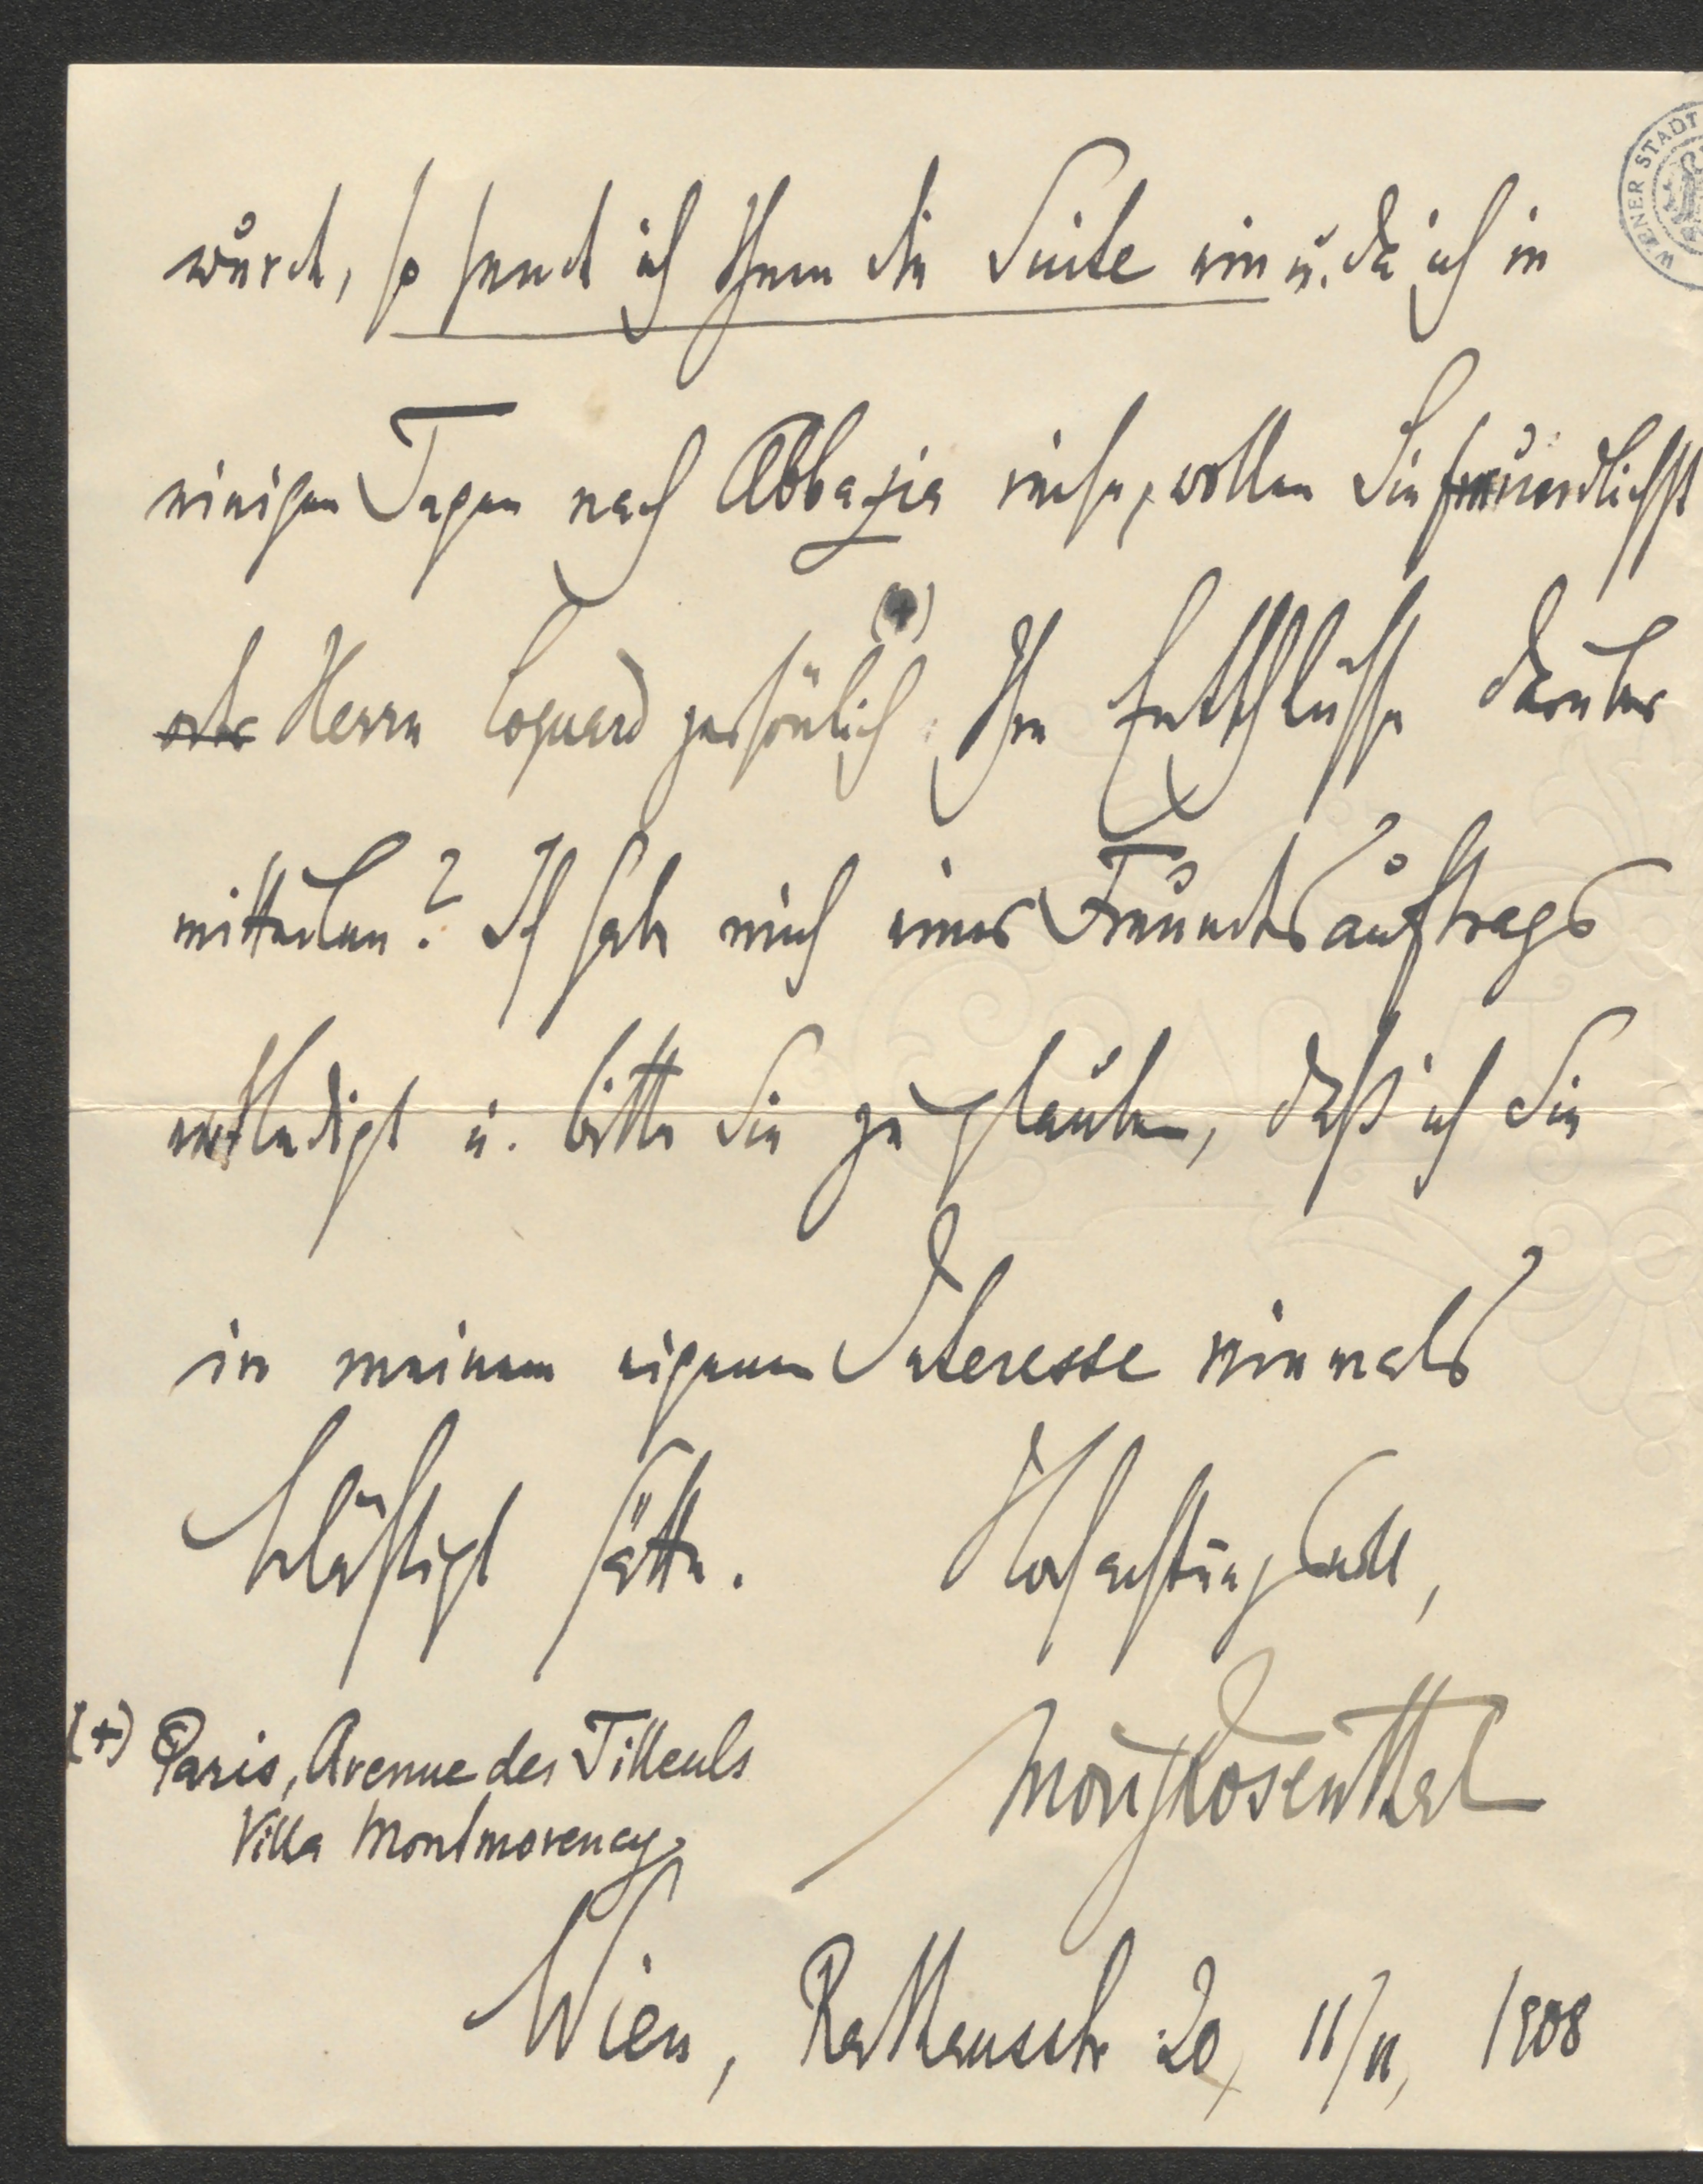 WIENER STADT
wurde, so sende ich Ihnen die Suite ein u. da ich in
einigen Tagen nach Abbazia reise, wollen Sie freundlichst
oder Herrn Coquard persönlich (+) Ihre Entschlüsse darüber
mitteilen? Ich habe mich eines Freundesauftrags
entledigt u. bitte Sie zu glauben, daß ich Sie
in meinem eigenen Interesse niemals
belästigt hätte. Hochachtungsvoll,
(+) Paris, Avenue des Tilleuls
Villa Montmorency.
Moriz Rosenthal
Wien, Rathausstr 20, 11/II, 1908